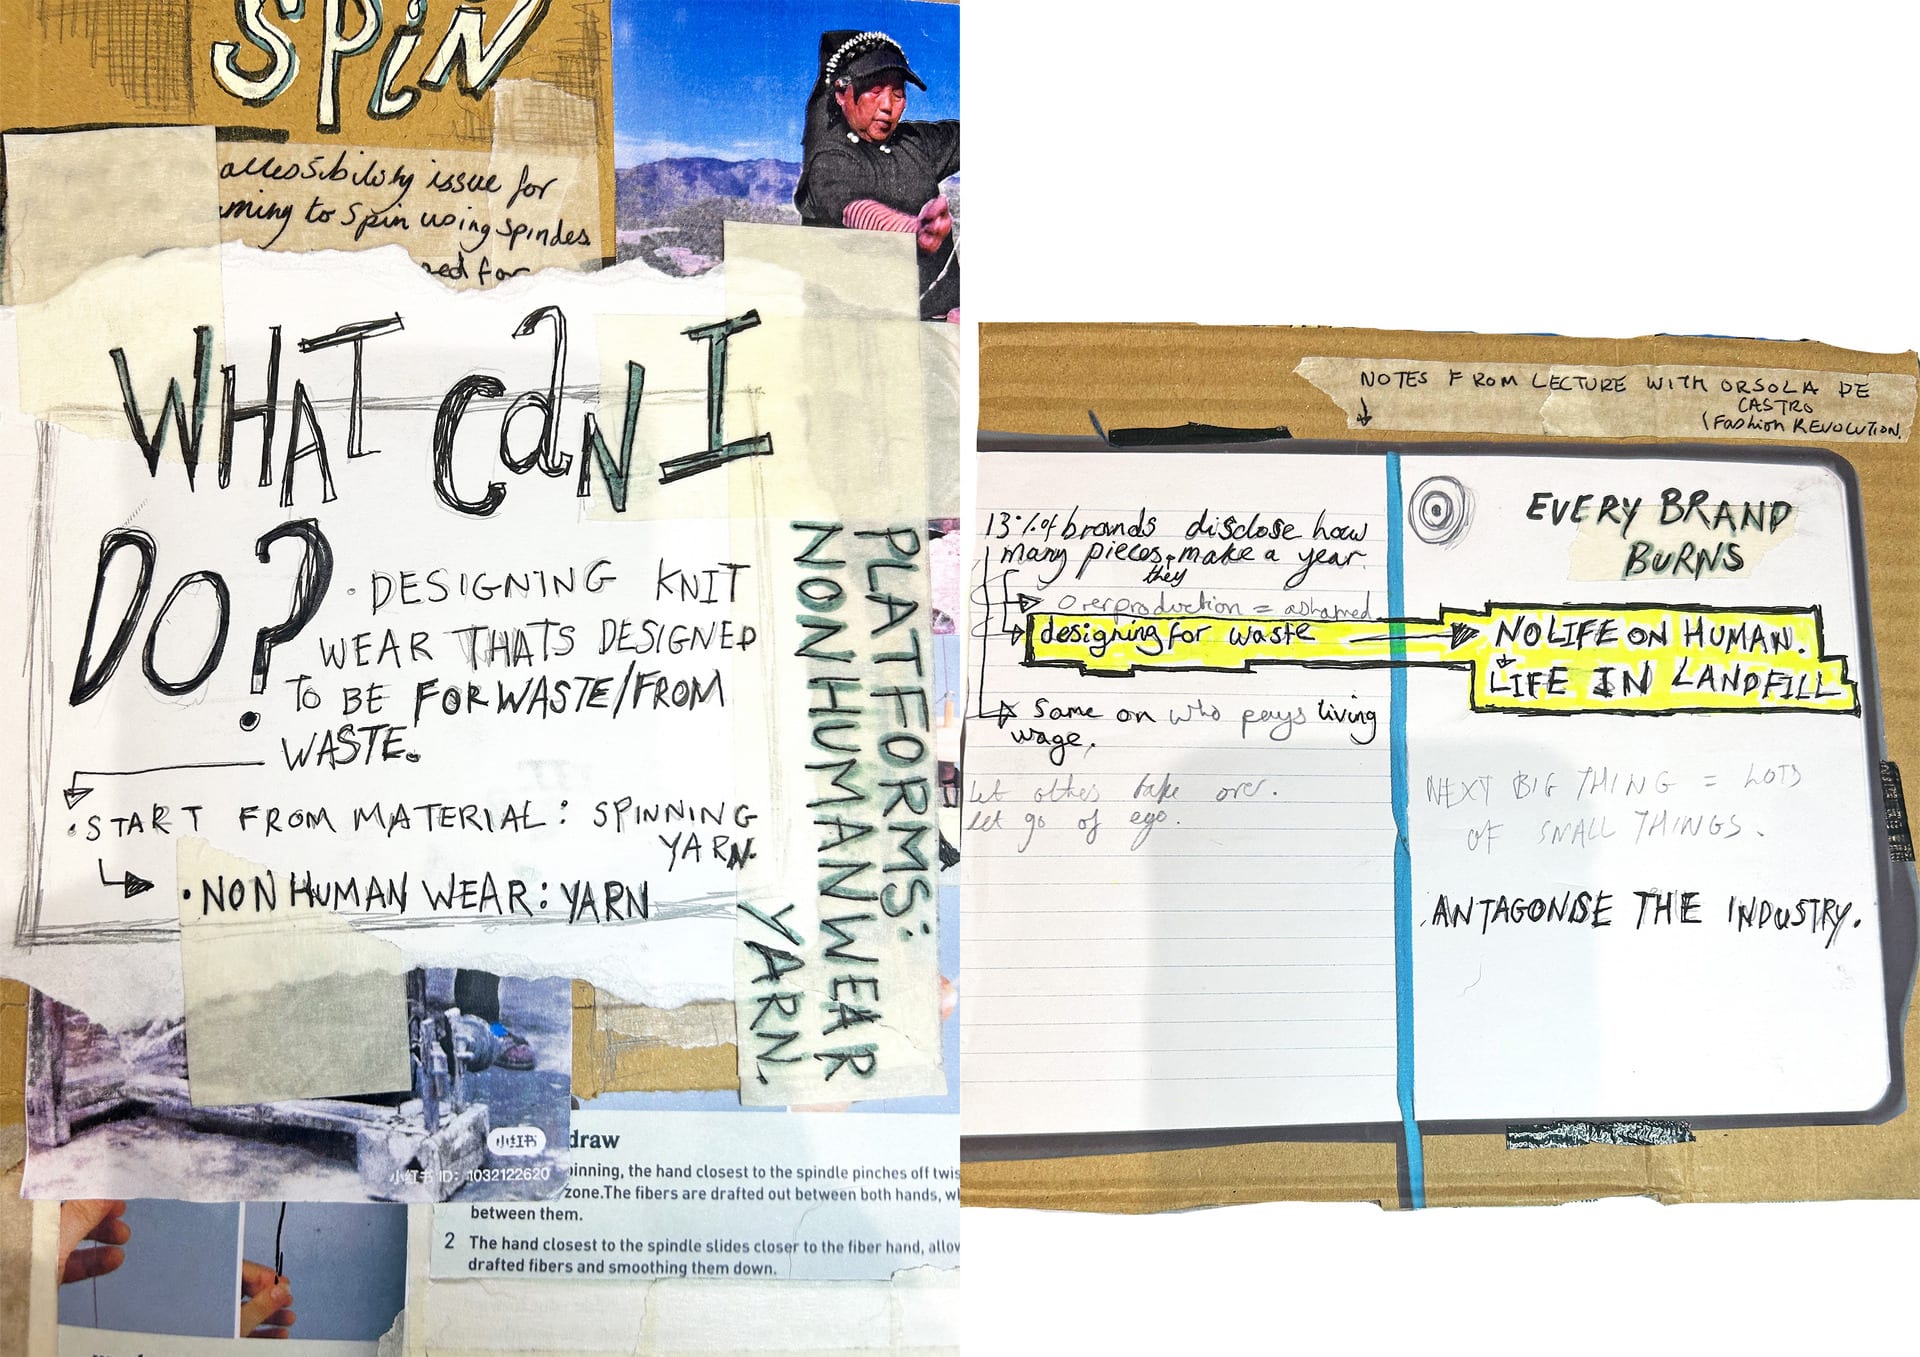 SPiN
accessibility issue for
to spin using spindles
for
WHAT CaN I
DO?
· DESIGNING KNIT
WEAR THATS DESIGNED
TO BE FOR WASTE/FROM
WASTE.
· START FROM MATERIAL: SPINNING
YARN.
· NON HUMAN WEAR: YARN
PLATFORMS:
NON HUMAN WEAR
YARN.
小红书
小红书 ID: 1032122620
draw
pinning, the hand closest to the spindle pinches off twis
zone. The fibers are drafted out between both hands, wh
between them.
2 The hand closest to the spindle slides closer to the fiber hand, allow
drafted fibers and smoothing them down.
NOTES FROM LECTURE WITH ORSOLA DE
CASTRO
(Fashion REVOLUTION.
13% of brands disclose how
many pieces they make a year.
overproduction = ashamed
designing for waste
Same on who pays living
wage.
let others take over.
let go of ego.
EVERY BRAND
BURNS
NO LIFE ON HUMAN.
LIFE IN LANDFILL
NEXT BIG THING = LOTS
OF SMALL THINGS.
ANTAGONISE THE INDUSTRY.